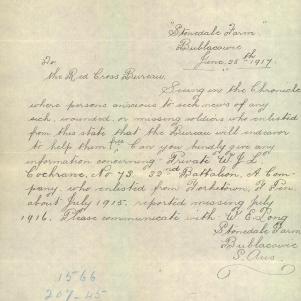 "Stonedale Farm"
Bublacowie
June, 28th, 1917.
To
the Red Cross Bureau.
Seeing in the Chronicle
where persons anxious to seek news of any
sick, wounded, or missing soldiers who enlisted
from this state that the Bureau will endeavor
to help them free, Can you kindly give any
information concerning Private W. J. L.
Cochrane, No 73. 32nd Battalion, A Com-
pany, who enlisted from Yorketown, Y Pen
about July 1915, reported missing July
1916. Please communicate with W E Long
Stonedale Farm
Bublacowie
S. Aus.
1566
207-45